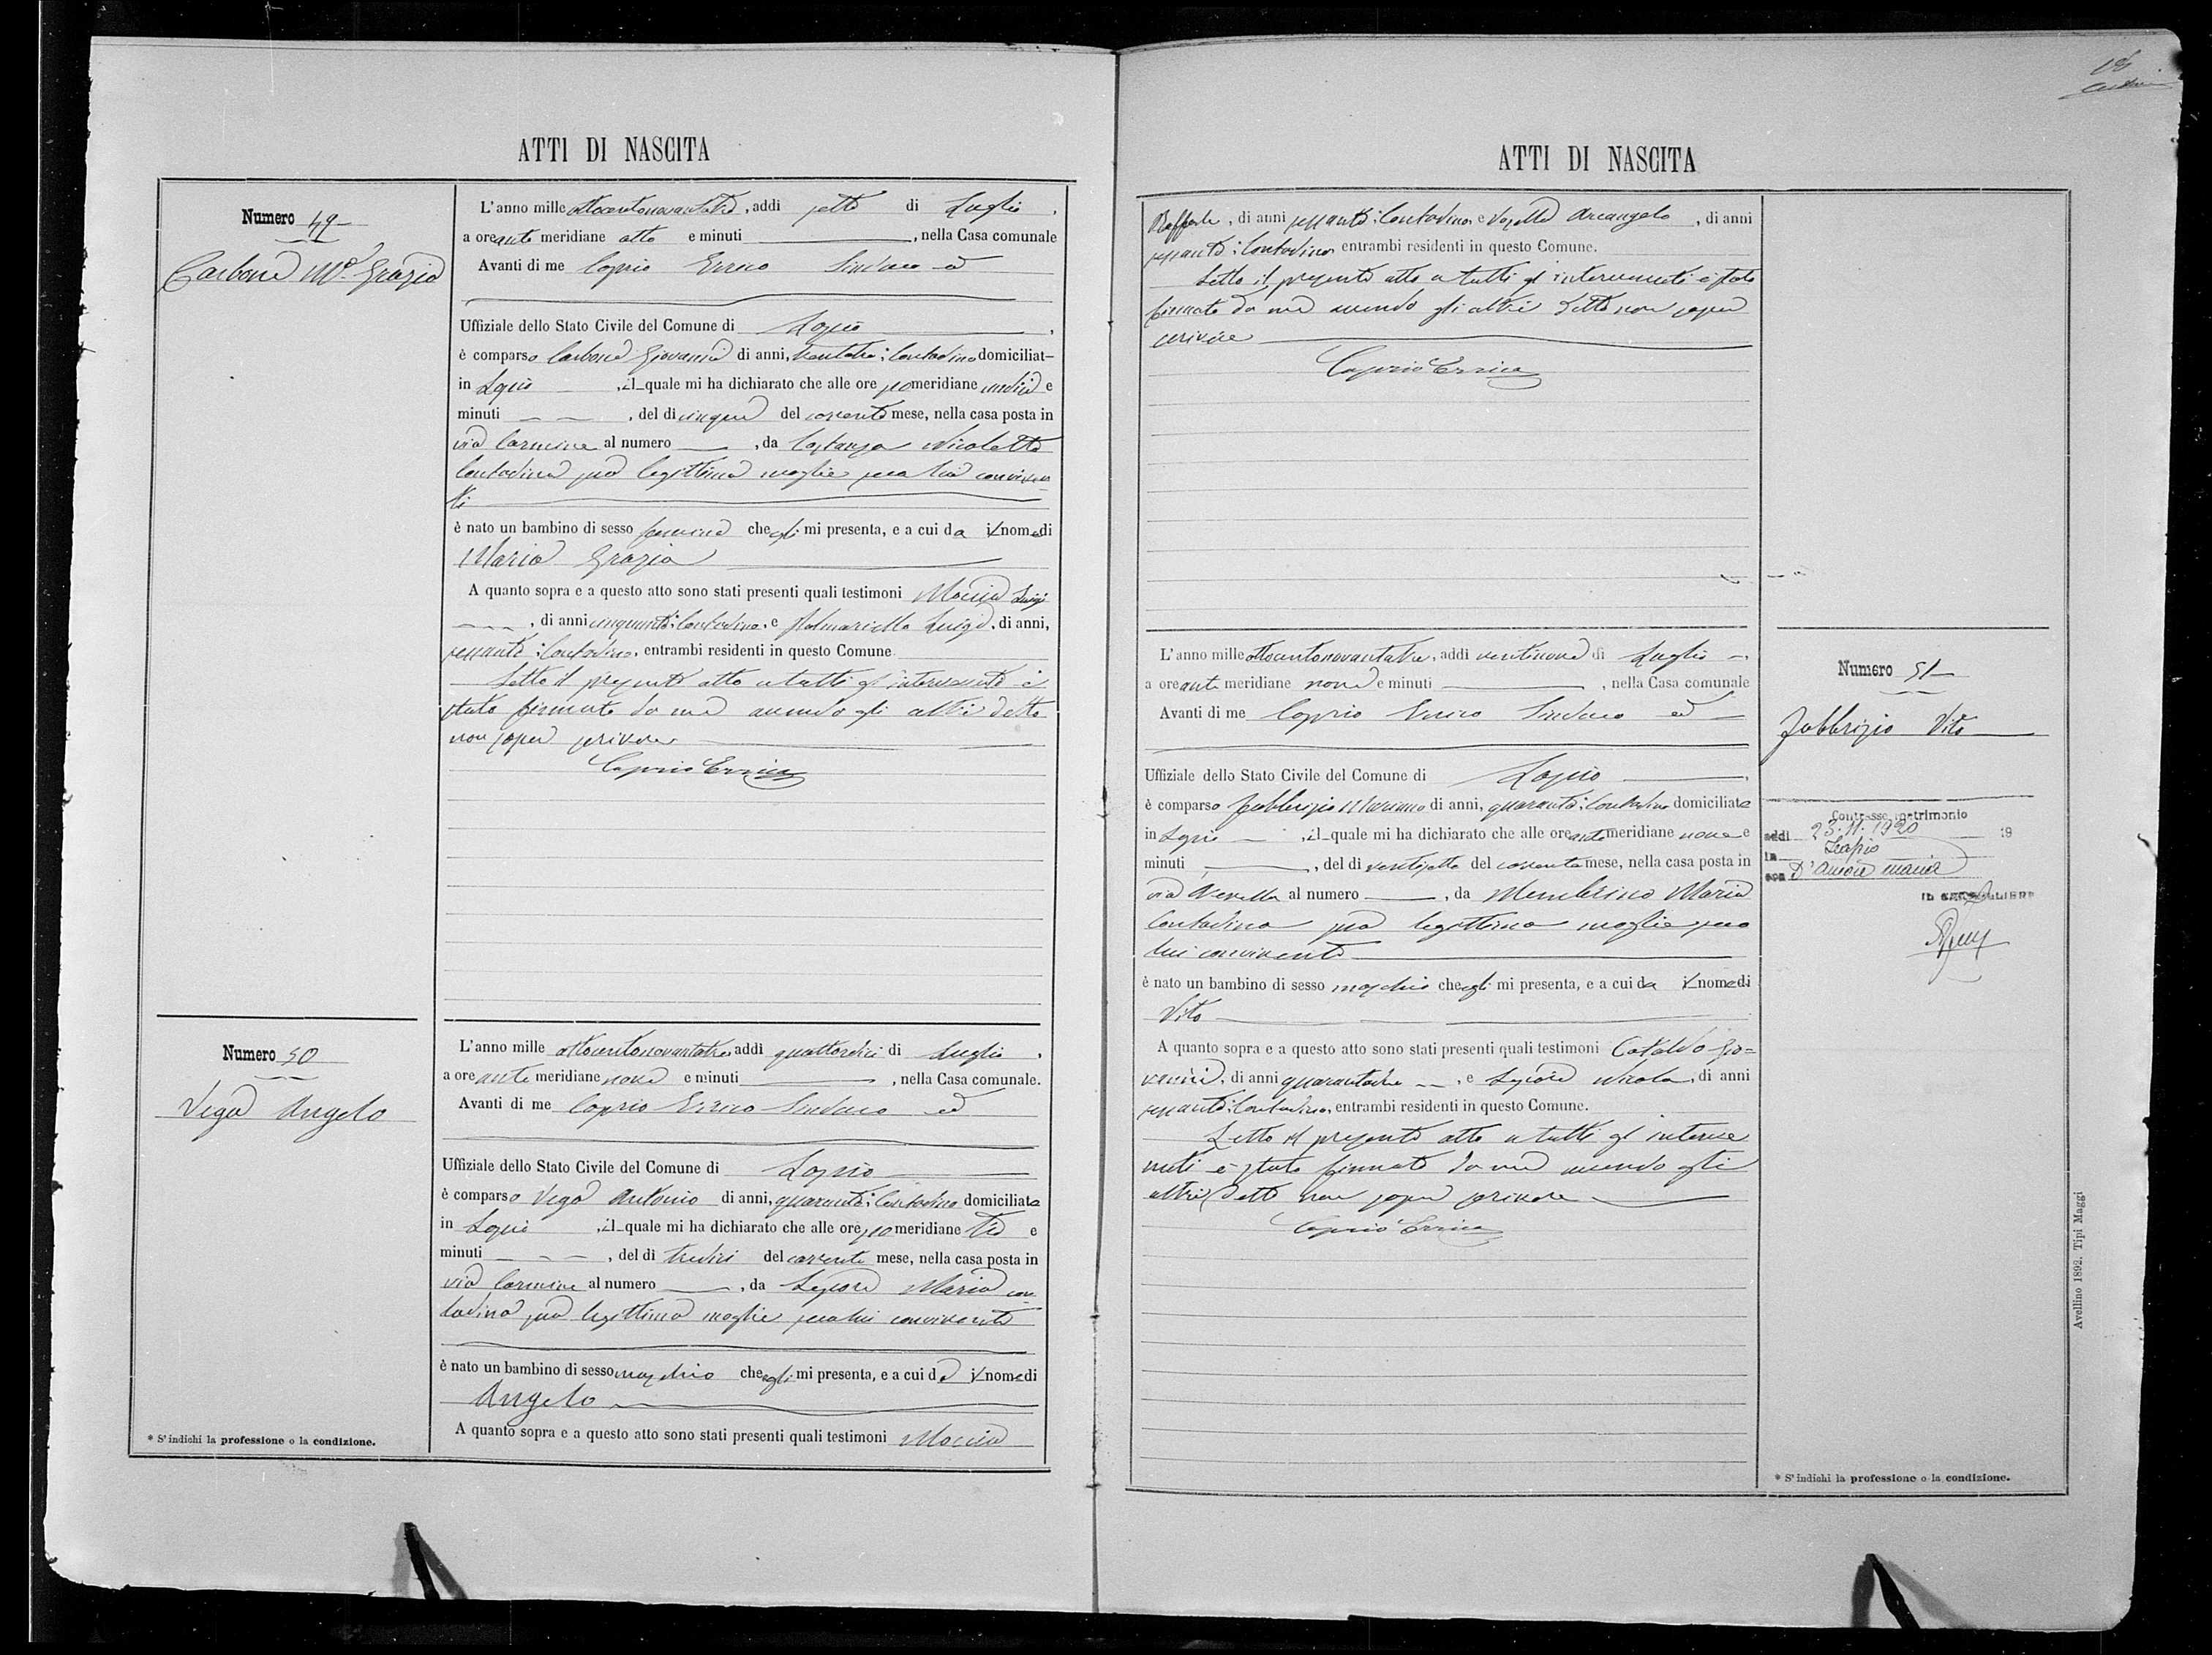 ATTI DI NASCITA
Numero 49
Carbone Mª Grazia
L'anno mille ottocentonovantatre, addi sette di Luglio,
a ore ante meridiane otto e minuti, nella Casa comunale
Avanti di me Caprio Errico Sindaco ed
Uffiziale dello Stato Civile del Comune di Lapio,
è comparso Carbone Giovanni di anni, trentatre; Contadino domiciliat-
in Lapio, il quale mi ha dichiarato che alle ore pomeridiane undici e
minuti, del di cinque del corrente mese, nella casa posta in
via Carmine al numero, da Costanza Nicoletta
Contadina sua legittima moglie seco lui conviven
te
è nato un bambino di sesso femmina che egli mi presenta, e a cui da i nome di
Maria Grazia
A quanto sopra e a questo atto sono stati presenti quali testimoni Moccia Luigi
, di anni cinquanta; Contadino, e Luigi, di anni,
sessanta; Contadino, entrambi residenti in questo Comune
Letto il presente atto a tutti gl'intervenuti è
stato firmato da me avendo gli altri detto
non saper scrivere
Caprio Errico
Numero 50
Vega Angelo
L'anno mille ottocentonovantatre, addi quattordici di Luglio,
a ore ante meridiane nove e minuti, nella Casa comunale.
Avanti di me Caprio Errico Sindaco ed
Uffiziale dello Stato Civile del Comune di Lapio
è comparso Vega Antonio di anni, quaranta; Contadino domiciliato
in Lapio, il quale mi ha dichiarato che alle ore pomeridiane tre e
minuti, del di tredici del corrente mese, nella casa posta in
via Carmine al numero, da Lepore Maria con
tadina sua legittima moglie seco lui convivente
è nato un bambino di sesso maschio che egli mi presenta, e a cui da i nome di
Angelo
A quanto sopra e a questo atto sono stati presenti quali testimoni Moccia
* S'indichi la professione o la condizione.
18
ATTI DI NASCITA
Raffaele, di anni sessanta; Contadino, e Arcangelo, di anni
sessanta; Contadino, entrambi residenti in questo Comune.
Letto il presente atto a tutti gl'intervenuti è stato
firmato da me avendo gli altri detto non saper
scrivere
Caprio Errico
L'anno mille ottocentonovantatre, addi ventinove di Luglio
a ore ante meridiane nove e minuti, nella Casa comunale
Avanti di me Caprio Errico Sindaco ed
Uffiziale dello Stato Civile del Comune di Lapio,
è comparso Fabbrizio Mariano di anni, quaranta; Contadino domiciliato
in Lapio, il quale mi ha dichiarato che alle ore antemeridiane nove e
minuti, del di ventisette del corrente mese, nella casa posta in
via al numero, da Membrino Maria
Contadina sua legittima moglie seco
lui convivente
è nato un bambino di sesso maschio che egli mi presenta, e a cui da i nome di
Vito
A quanto sopra e a questo atto sono stati presenti quali testimoni Cataldo Gio=
vanni, di anni quarantatre, e Lepore Nicola, di anni
sessanta; Contadino, entrambi residenti in questo Comune.
Letto il presente atto a tutti gl'interve
nuti è stato firmato da me avendo gli
altri detto non saper scrivere
Caprio Errico
Numero 51
Fabbrizio Vito
Contrasse matrimonio
addi 23.11.1920 19
in Lapio
con D'Amore Maria
* S'indichi la professione o la condizione.
Avellino 1892. Tipi Maggi